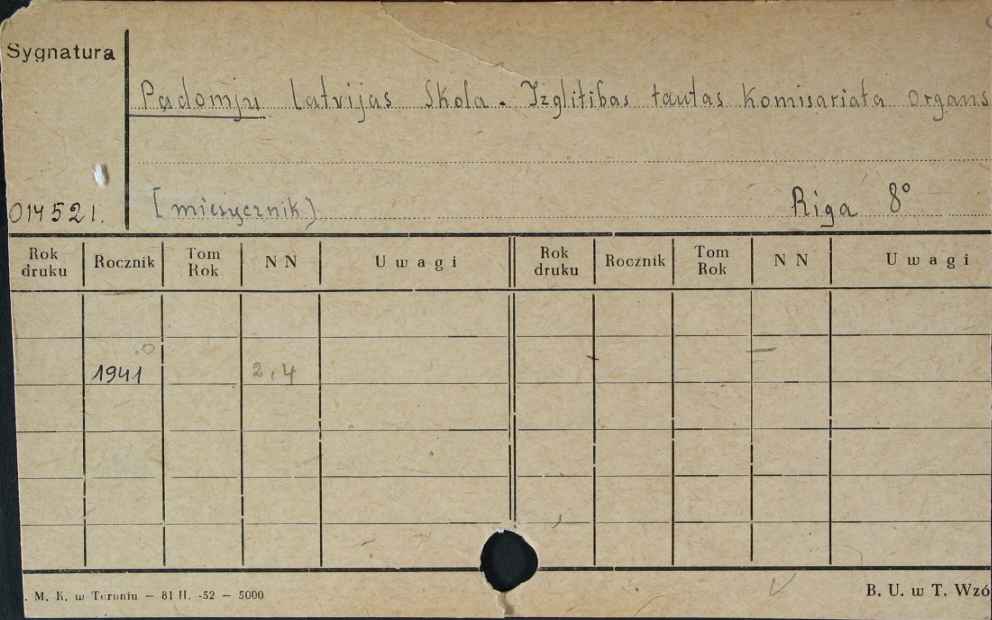 Sygnatura
Padomju Latvijas Skola. Izglitibas tautas Komisariata organs
014521.
[miesięcznik]
Riga 8°
Rok druku Rocznik Tom Rok NN Uwagi Rok druku Rocznik Tom Rok NN Uwagi
1941 2,4
. M. K. w Toruniu — 81 II. -52 — 5000
B. U. w T. Wzó